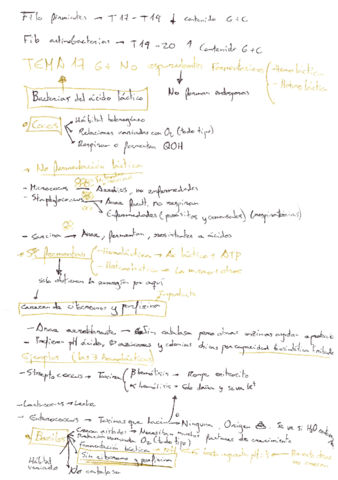 Filo firmicutes → T17 - T19 ↓ contenido G+C
Filo actinobacterias → T19-20 ↑ Contenido G+C
TEMA 17 G+ No esporulados Fermentadores - Homoláctica
- Heteroláctica
Bacterias del ácido láctico
No forman endosporas
Cocos
Hábitat heterogéneo
Relaciones variadas con O2 (todo tipo)
Respiran o fermentan QOH
→ No fermentación láctica
- Micrococcus → Aerobios, no enfermedades
- Staphylococcus → Anae facult, no respiran
Enfermedades (parásitos y comensales) (respiratorias)
- Sarcina → Anae, fermentan, resistentes a ácidos
→ Sí fermentan - Homoláctica → Ac láctico + ATP
- Heteroláctica → La misma + otros
solo obtienen la energía por aquí
Carecen de citocromos y porfirina
- Anae aerotolerante → Sin catalasa pero otras enzimas ayudan a
- Prefieren pH ácido, azúcares y colonias chicas por capacidad biosintética limitada
Ejemplos (las 3 homolácticas)
- Streptococcus → Toxina β hemólisis → Rompe eritrocito
α hemólisis → Solo daña y se va
- Lactococcus → Leche
- Enterococcus → Toxinas que hacen Ninguna. Origen Se ve si H2O
Bacilos
Hábitat variado
Necesitan muchos factores de crecimiento
Relación variada O2 (todo tipo)
Fermentación láctica
Sin citocromos y porfirina
No catalasa